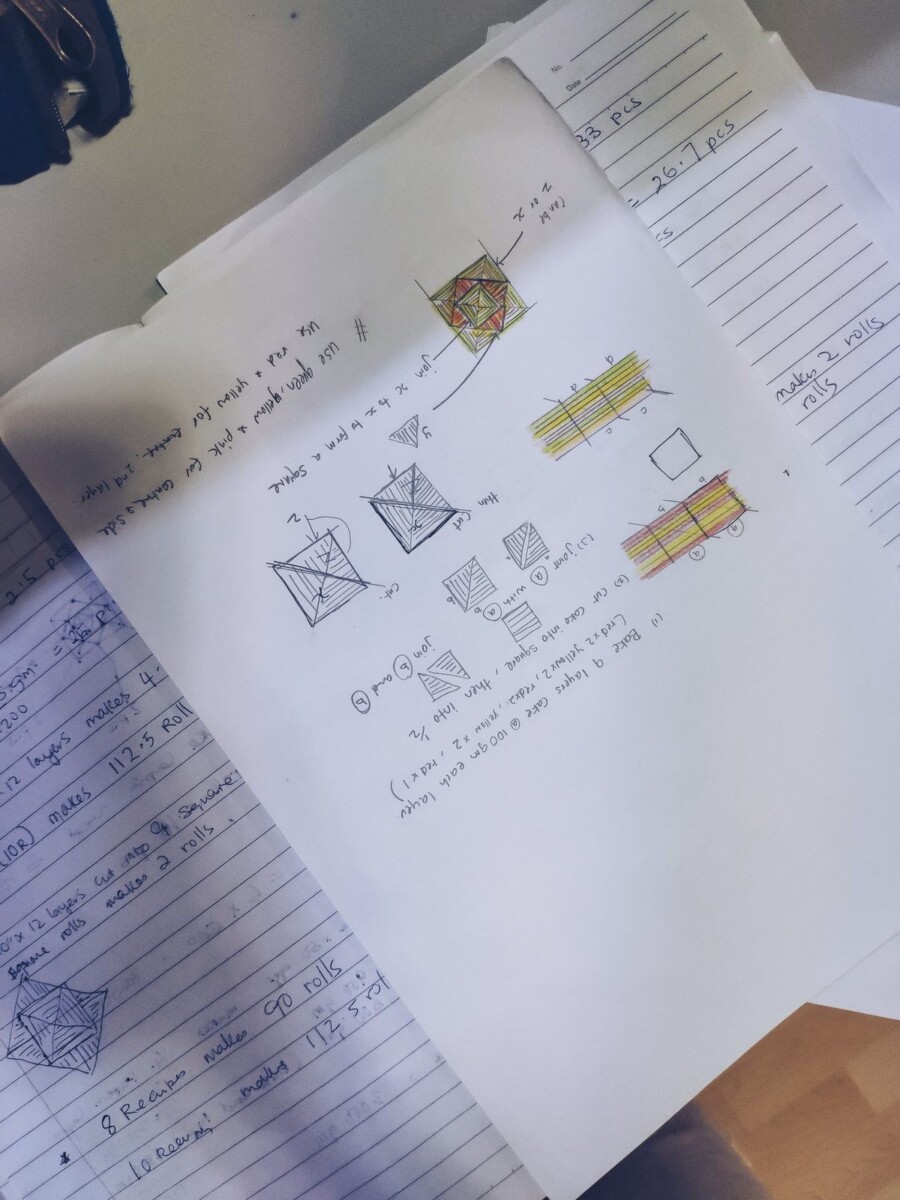 (1) Bake 9 layers cake @ 100gm each layer.
(red x 2 yellow x 2, red x 2, yellow x 2, red x 1)
(2) cut cake into square, then into 1/2
(3) joint a with a
join b and b
a
a
b
b
c
c
d
d
b
b
then cut
cut.
x
x
z
y
join x to x to form a square
can be
z or x
# use green, yellow & pink for centre & side
use red & yellow for 2nd layer
No.
Date
33 pcs
= 26.7 pcs
cs
makes 2 rolls
rolls
2.5
1200
x 12 layers makes 4.
(10R) makes 112.5 Roll
0" x 12 layers cut into 9 square.
square rolls makes 2 rolls.
* 8 Recipes makes 90 rolls
10 makes 112.5